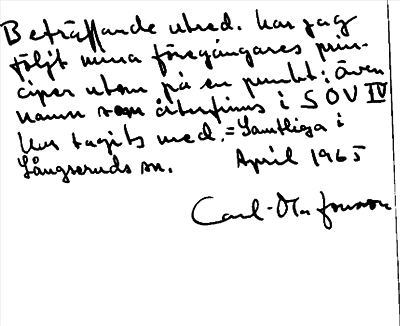 Beträffande utred. har jag
följt mina föregångares prin-
ciper utom på en punkt: Även
namn som återfinns i SOV IV
har tagits med. = Samtliga i
Långseruds sn. April 1965
Carl-Olof Jonsson